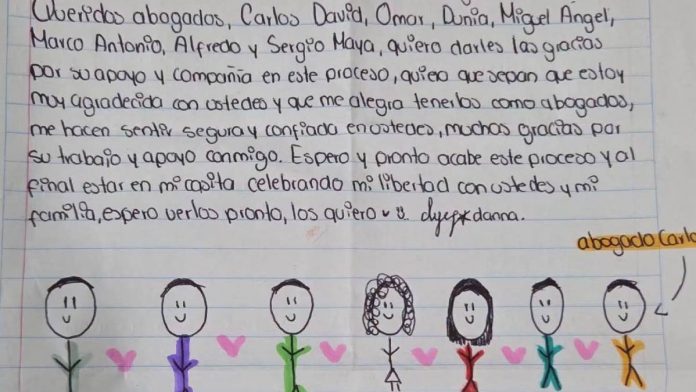 Queridos abogados, Carlos David, Omar, Dunia, Miguel Angel,
Marco Antonio, Alfredo y Sergio Maya, quiero darles las gracias
por su apoyo y compañia en este proceso, quiero que sepan que estoy
muy agradecida con ustedes y que me alegra tenerlos como abogados,
me hacen sentir segura y confiada en ustedes, muchas gracias por
su trabajo y apoyo conmigo. Espero y pronto acabe este proceso y al
final estar en mi casita celebrando mi libertad con ustedes y mi
familia, espero verlos pronto, los quiero danna.
abogado Carlo